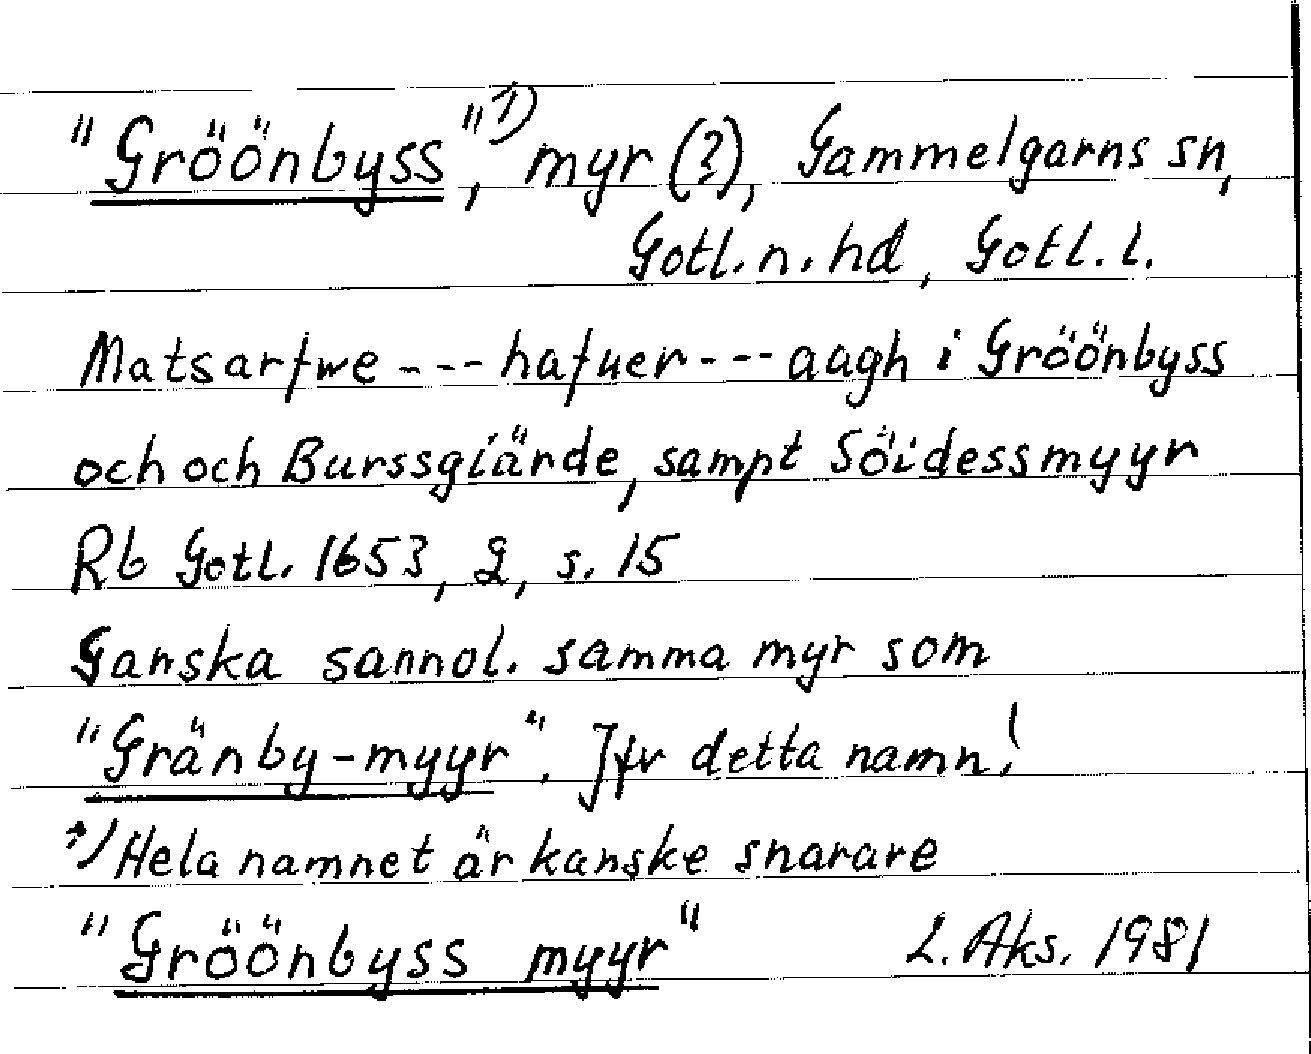 "Gröönbyss"¹⁾, myr (?), Gammelgarns sn,
Gotl. n. hd, Gotl. l.
Matsarfwe --- hafuer --- aagh i Gröönbyss
och och Burssgiärde, sampt Söidessmyyr
Rb Gotl. 1653, 2, s. 15
Ganska sannol. samma myr som
"Gränby-myyr". Jfr detta namn!
¹⁾ Hela namnet är kanske snarare
"Gröönbyss myyr" L. Aks. 1981